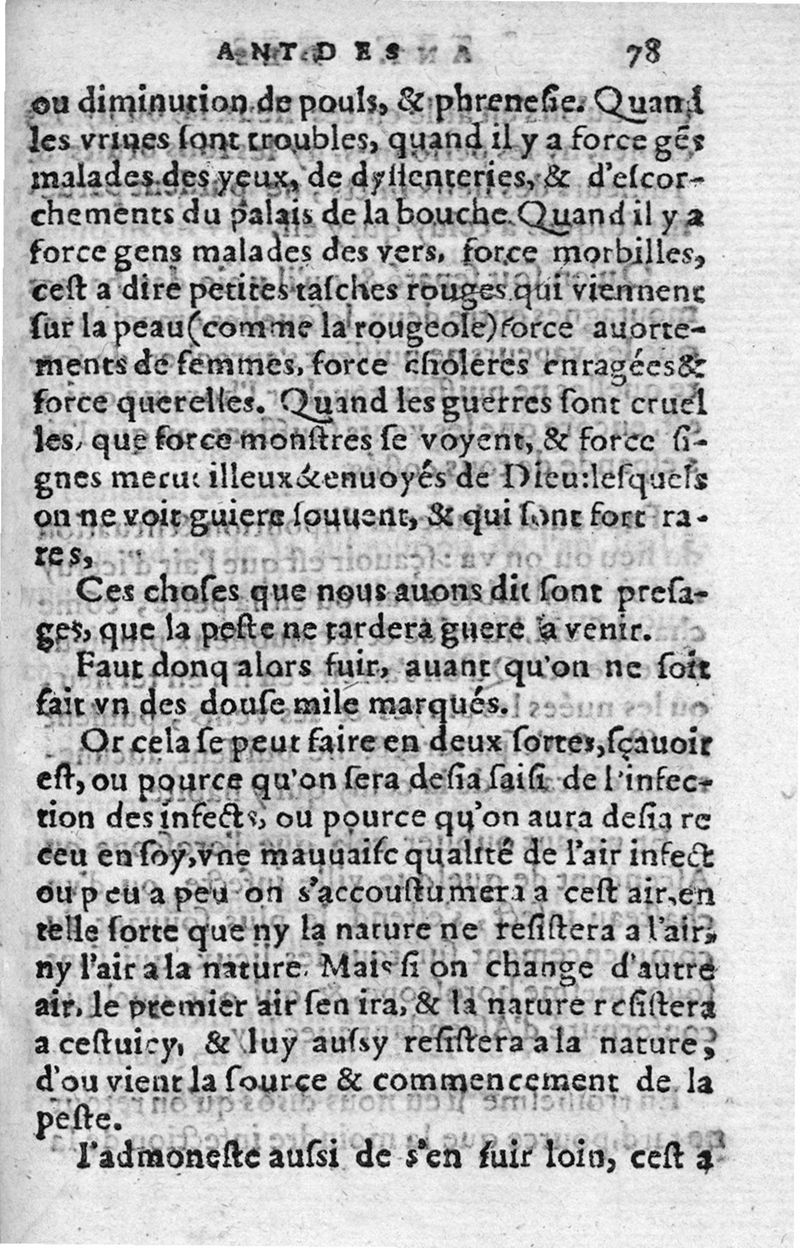 ANT.DES 78
ou diminution de pouls, & phrenesie. Quand
les vrines ſont troubles, quand il y a force gẽs
malades des yeux, de dyſſenteries, & d'eſcor-
chements du palais de la bouche. Quand il y a
force gens malades des vers, force morbilles,
ceſt a dire petites taſches rouges qui viennent
ſur la peau (comme la rougeole) force auorte-
ments de femmes, force choleres enragées &
force querelles. Quand les guerres ſont cruel
les, que force monſtres ſe voyent, & force ſi-
gnes merueilleux & enuoyés de Dieu: leſquels
on ne voit guiere ſouuent, & qui ſont fort ra-
res,
Ces choſes que nous auons dit ſont preſa-
ges, que la peſte ne tardera guere a venir.
Faut donq alors fuir, auant qu'on ne ſoit
fait vn des douſe mile marqués.
Or cela ſe peut faire en deux ſortes, ſçauoir
eſt, ou pource qu'on ſera deſia ſaiſi de l'infec-
tion des infects, ou pource qu'on aura deſia re
ceu en ſoy, vne mauuaiſe qualité de l'air infect
ou peu a peu on s'accouſtumera a ceſt air, en
telle ſorte que ny la nature ne reſiſtera a l'air,
ny l'air a la nature. Mais ſi on change d'autre
air, le premier air ſen ira, & la nature reſiſtera
a ceſtuicy, & luy auſsy reſiſtera a la nature,
d'ou vient la ſource & commencement de la
peſte.
I'admoneſte auſsi de s'en fuir loin, ceſt a